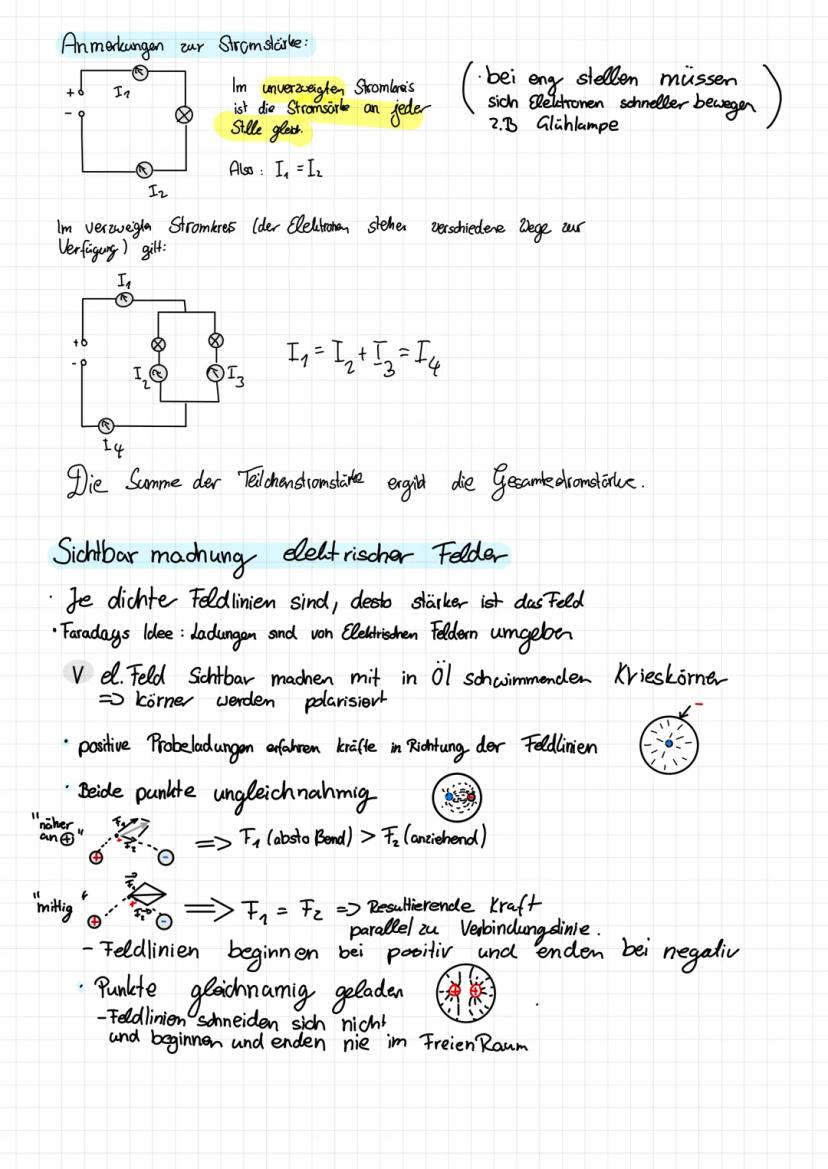 Anmerkungen zur Stromstärke:
+
-
I₁
I₂
Im unverzweigten Stromkreis
ist die Stromsärke an jeder
Stlle gleich.
Also: I₁ = I₂
( · bei eng stellen müssen
sich Elektronen schneller bewegen
z.B Glühlampe )
Im verzweigten Stromkreis (der Elektronen stehen verschiedene Wege zur
Verfügung) gilt:
I₁
+
-
I₂
I₃
I₄
I₁ = I₂ + I₃ = I₄
Die Summe der Teilchenstromstärke ergibt die Gesamtstromstärke.
Sichtbar machung elektrischer Felder
· Je dichte Feldlinien sind, desto stärker ist das Feld
· Faradays Idee: Ladungen sind von Elektrischen Feldern umgeben
V el. Feld Sichtbar machen mit in Öl schwimmenden Krieskörner
=> körner werden polarisiert
-
· positive Probeladungen erfahren kräfte in Richtung der Feldlinien
· Beide punkte ungleichnahmig
"näher
an ⊕"
F₁
F₂
+
-
=> F₁ (abstoßend) > F₂ (anziehend)
"mittig"
F₁
F₂
+
-
=> F₁ = F₂ => Resultierende Kraft
parallel zu Verbindungslinie.
- Feldlinien beginnen bei positiv und enden bei negativ
· Punkte gleichnamig geladen
+ +
- Feldlinien schneiden sich nicht
und beginnen und enden nie im Freien Raum